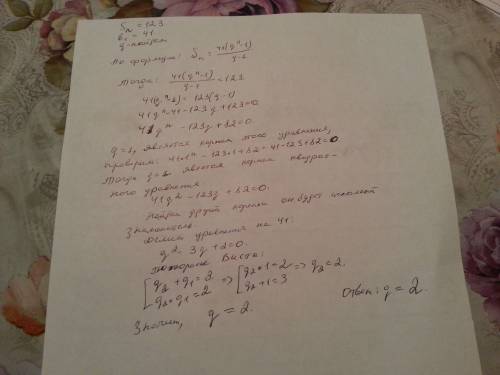 Sn = 123.
b1 = 41
q - найти
По формуле: Sn = 41(q^n - 1) / q - 1
Тогда: 41(q^n - 1) / q - 1 = 123
41(q^n - 1) = 123(q - 1)
41q^n - 41 - 123q + 123 = 0.
41q^n - 123q + 82 = 0.
q = 1, является корнем этого уравнения,
проверим: 41·1^n - 123·1 + 82 = 41 - 123 + 82 = 0
Тогда q = 1 является корнем квадрат-
ного уравнения
41q² - 123q + 82 = 0.
Найдя другой корень он будет искомой
Знаменатель
Делим уравнения на 41:
q² - 3q + 2 = 0.
По теореме Виета:
[ q2 + q1 = 3 => [ q2 · 1 = 2 => q2 = 2.
[ q2 · q1 = 2 [ q2 + 1 = 3
Значит, q = 2.
Ответ: q = 2.